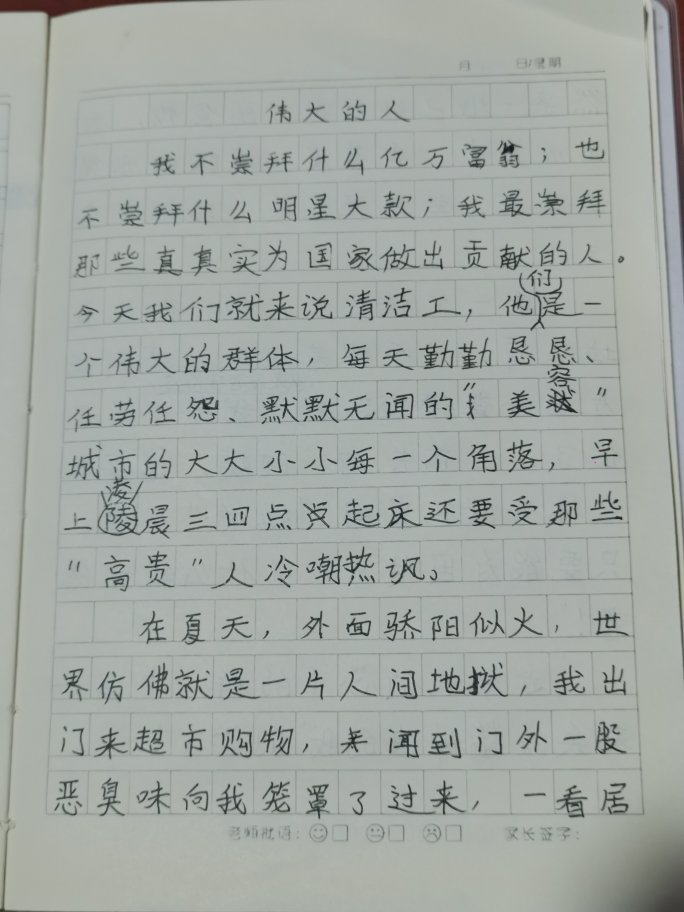 月 日/星期
伟大的人
我不崇拜什么亿万富翁；也
不崇拜什么明星大款；我最崇拜
那些真真实为国家做出贡献的人。
今天我们就来说清洁工，他们是一
个伟大的群体，每天勤勤恳恳、
任劳任怨、默默无闻的“美容”
城市的大大小小每一个角落，早
上凌晨三四点点起床还要受那些
“高贵”人冷嘲热讽。
在夏天，外面骄阳似火，世
界仿佛就是一片人间地狱，我出
门来超市购物，闻到门外一股
恶臭味向我笼罩了过来，一看居
老师批语： 家长签字：